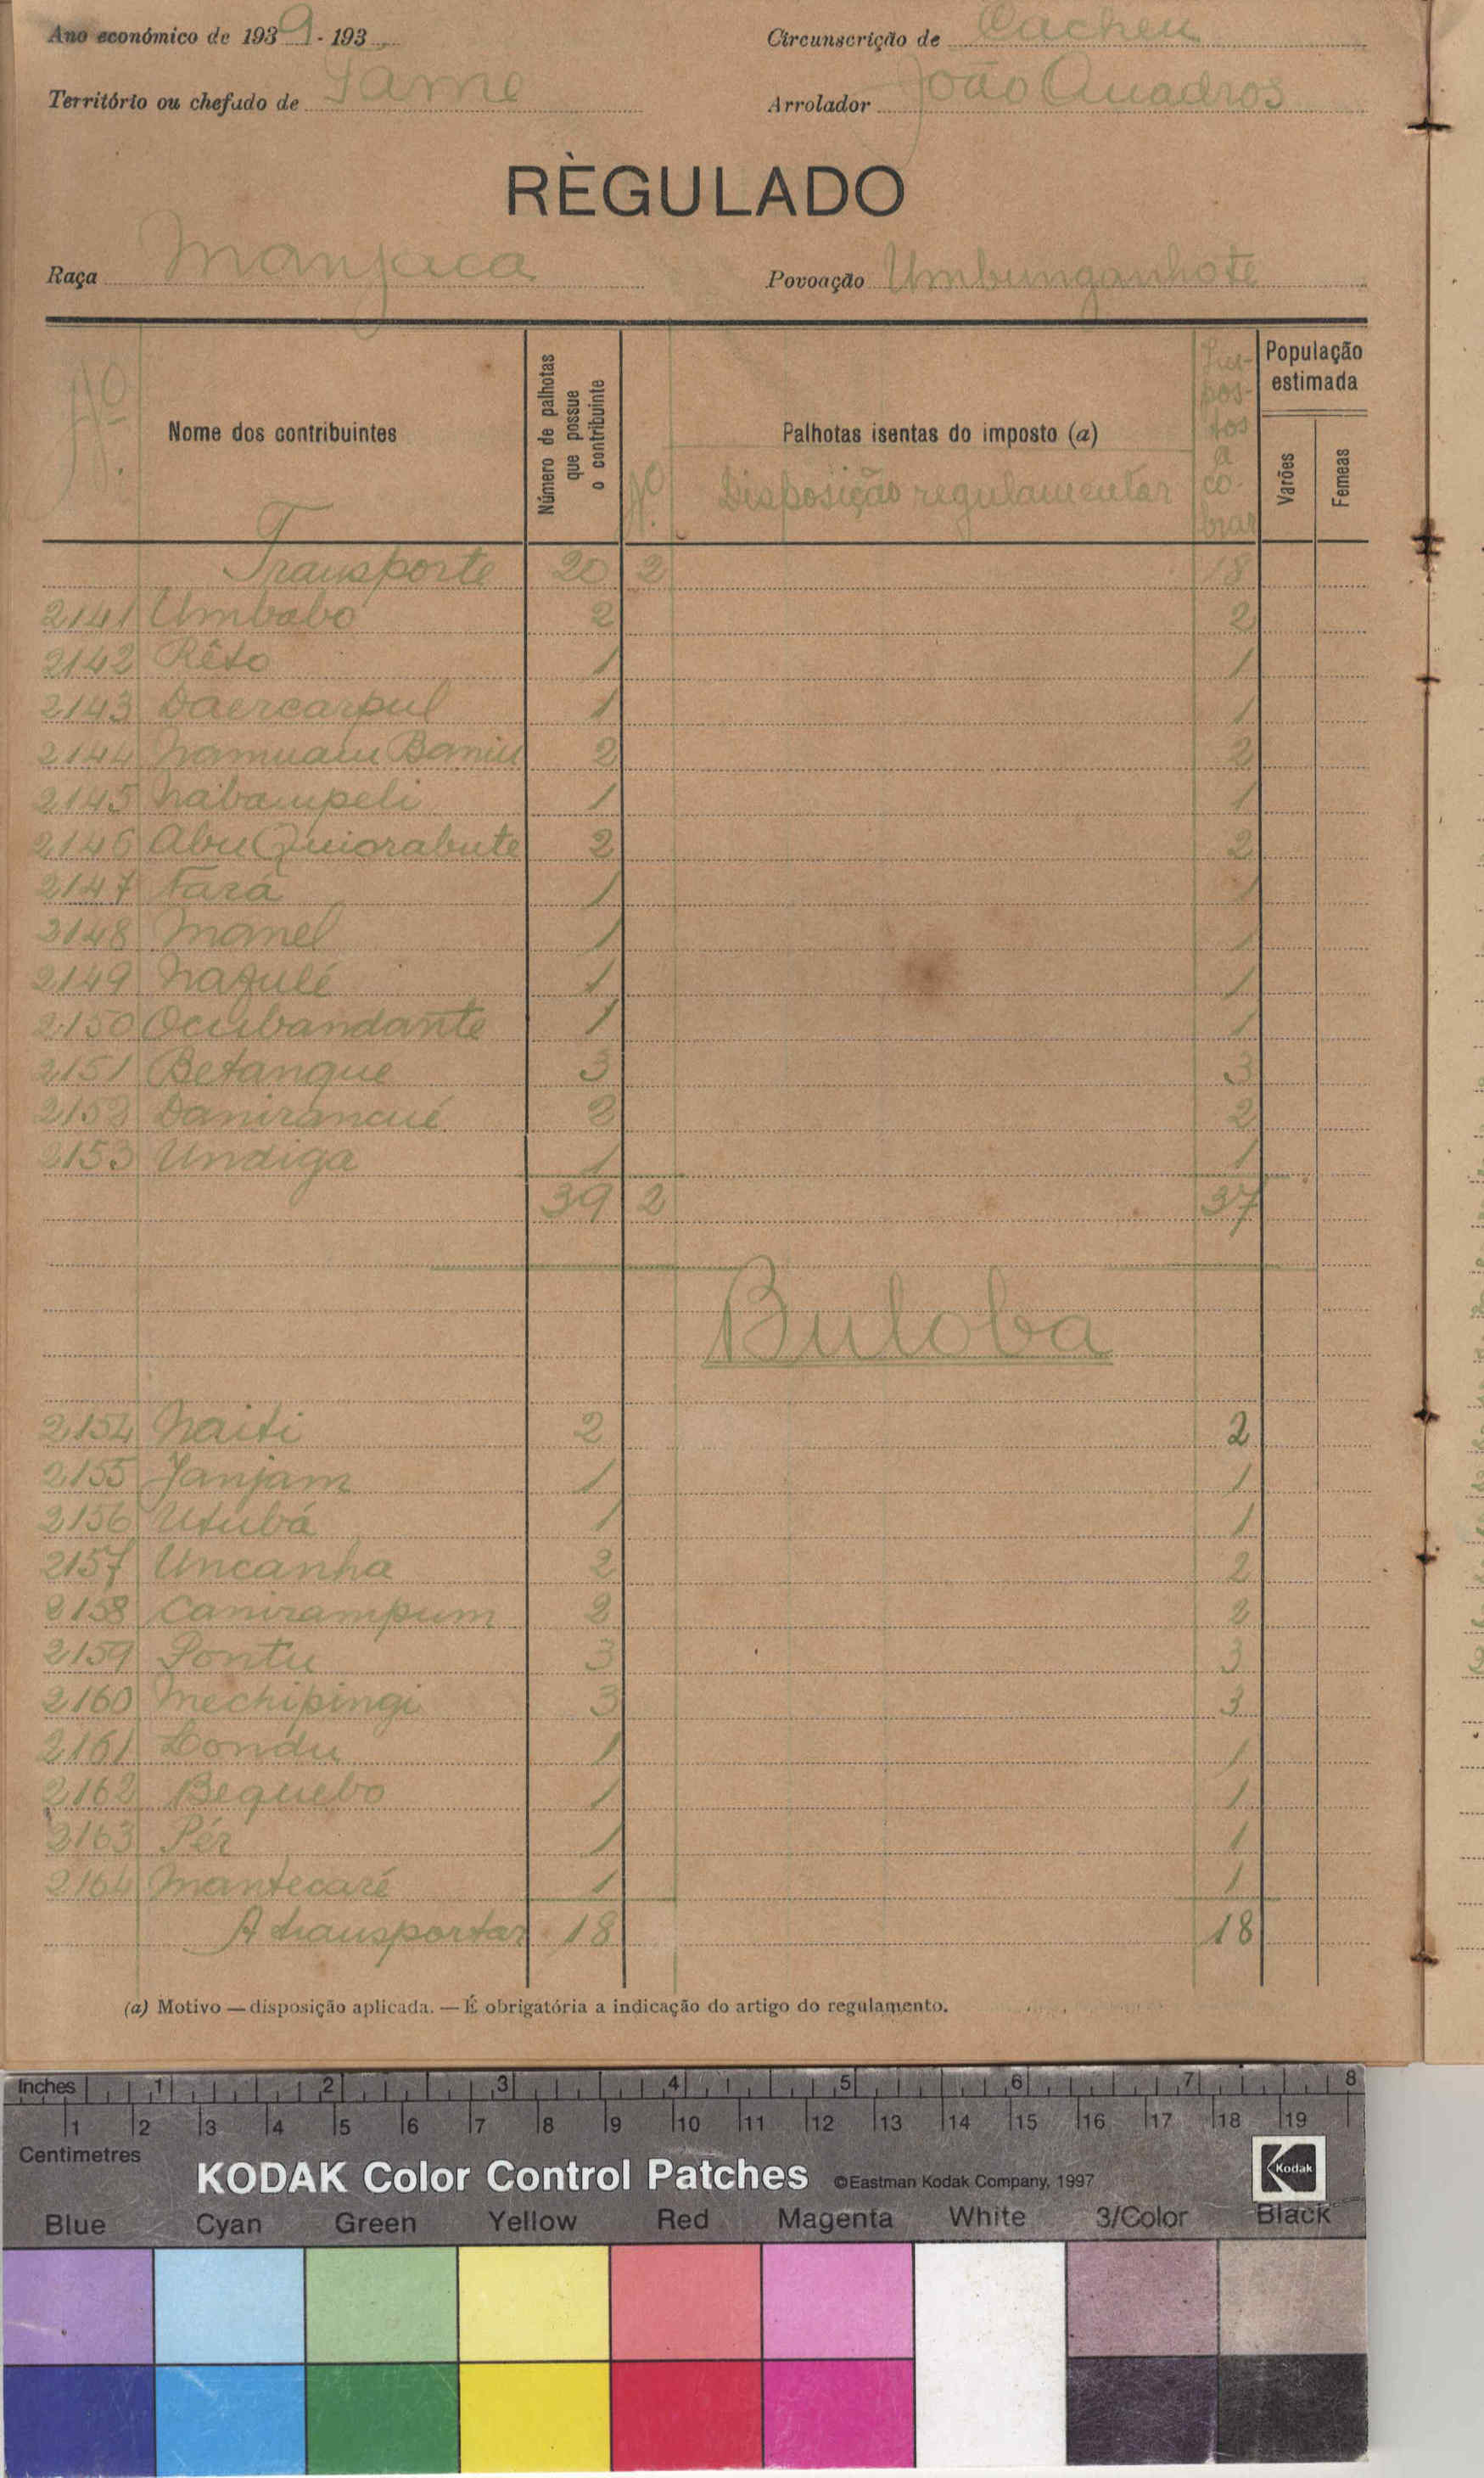 Ano económico de 1939 - 193
Circunscrição de Cacheu
Território ou chefado de Jame
Arrolador João Quadros
RÈGULADO
Raça Manjaca
Povoação Umbunganhote
Nº
Nome dos contribuintes
Número de palhotas que possue o contribuinte
Nº
Palhotas isentas do imposto (a)
Disposição regulamentar
Impostos a cobrar
População estimada
Varões
Femeas
Transporte 20 2 18
2141 Umbabo 2 2
2142 Rêto 1 1
2143 Daercarpul 1 1
2144 Namuain Baniu 2 2
2145 Nabampeli 1 1
2146 Abu Quiorabute 2 2
2147 Fará 1 1
2148 Manel 1 1
2149 Nafulé 1 1
2150 Ocubandante 1 1
2151 Betanque 3 3
2152 Danirancué 2 2
2153 Undiga 1 1
39 2 37
Buloba
2154 Naiti 2 2
2155 Janjam 1 1
2156 Utubá 1 1
2157 Uncanha 2 2
2158 Canirampum 2 2
2159 Pontu 3 3
2160 Mechipingi 3 3
2161 Londu 1 1
2162 Bequebo 1 1
2163 Pér 1 1
2164 Mantecaré 1 1
A transportar 18 18
(a) Motivo — disposição aplicada. — É obrigatória a indicação do artigo do regulamento.
Inches 1 2 3 4 5 6 7 8
1 2 3 4 5 6 7 8 9 10 11 12 13 14 15 16 17 18 19
Centimetres
KODAK Color Control Patches ©Eastman Kodak Company, 1997 Kodak
Blue Cyan Green Yellow Red Magenta White 3/Color Black